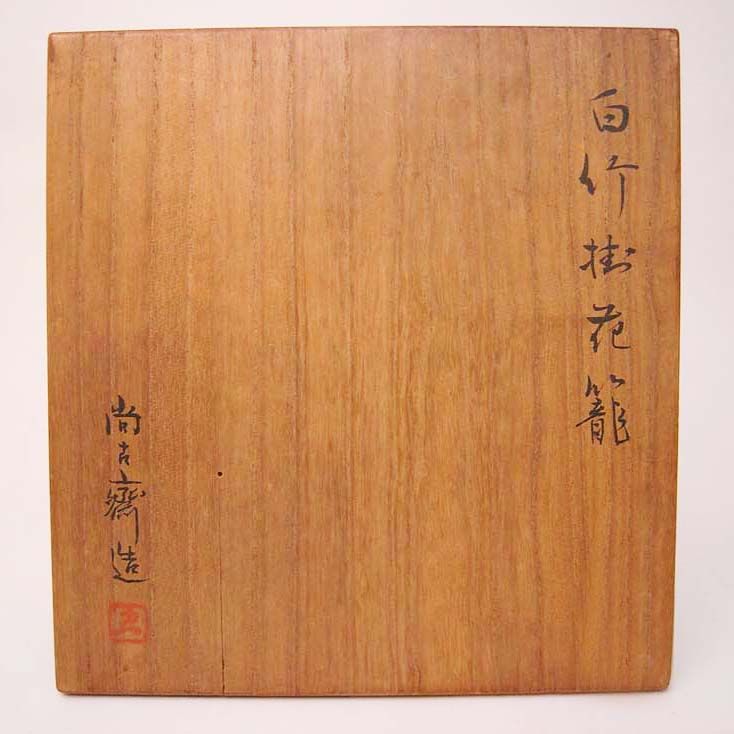 白竹掛花籠
尚古齋造